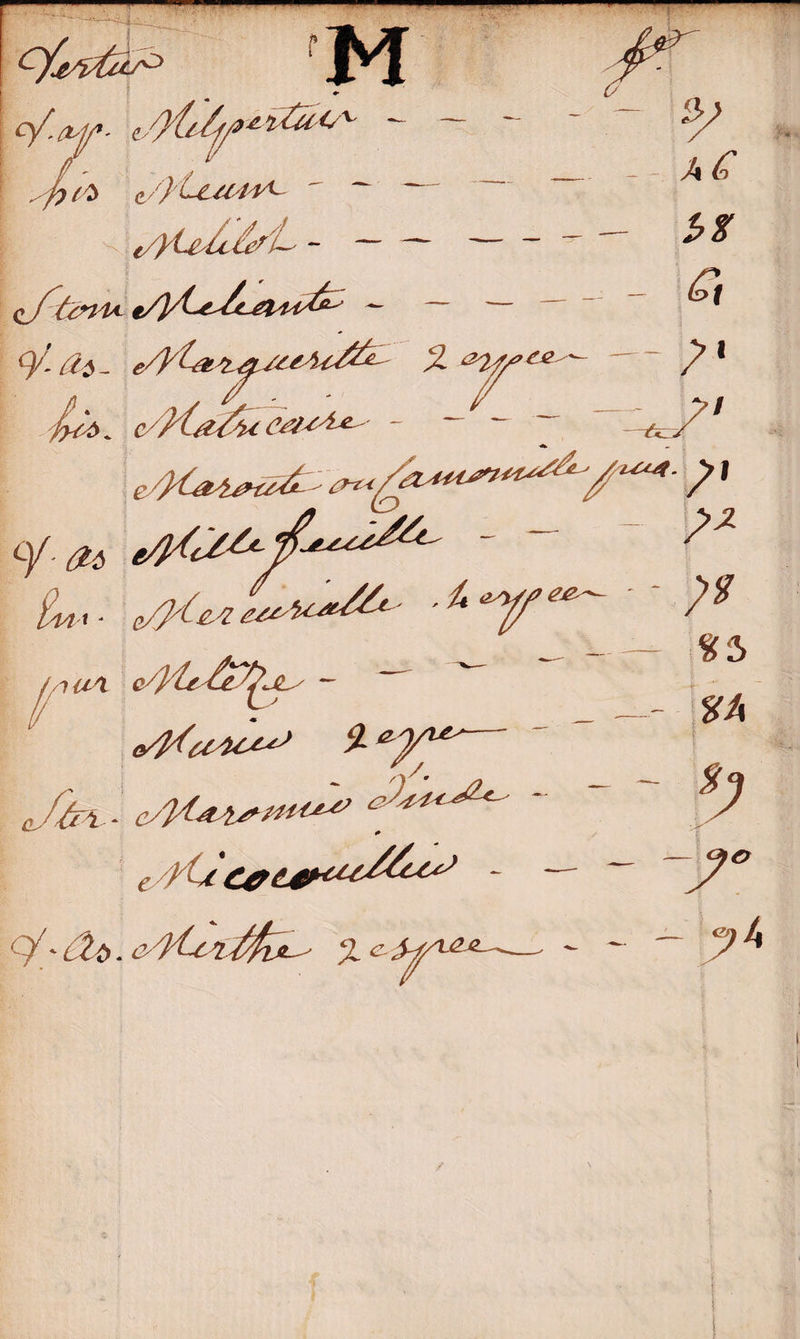 Vertus M fo
V. ap. Milpertuis - - - - - 37
his Meum - - - - - 46
Melilot - - - - - - 58
Stom Meliante - - - - - 61
V. as. Margueritte 2 espece - - 71
his. Matricaire - - - - 71
Maroute ou Camomille pua. 71
V. as Mille feuille - - - 72
Mercurialle . 4 espece - - 78
pur - - - - - 83
Mures 2 espe - - - 84
Ster. Maronnier Dinde - - - 89
Micocoullier - - - 90
V. as. Mirthe 2 espece - - - 94